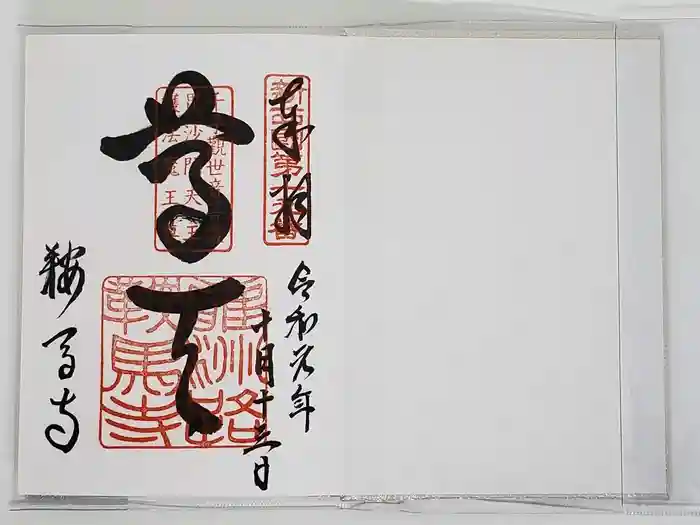 奉拝
新西国第十九番
令和元年
十月十三日
尊天
千手觀世音菩薩
毘沙門天王
護法魔王尊
雍州路
鞍馬寺
鞍馬寺